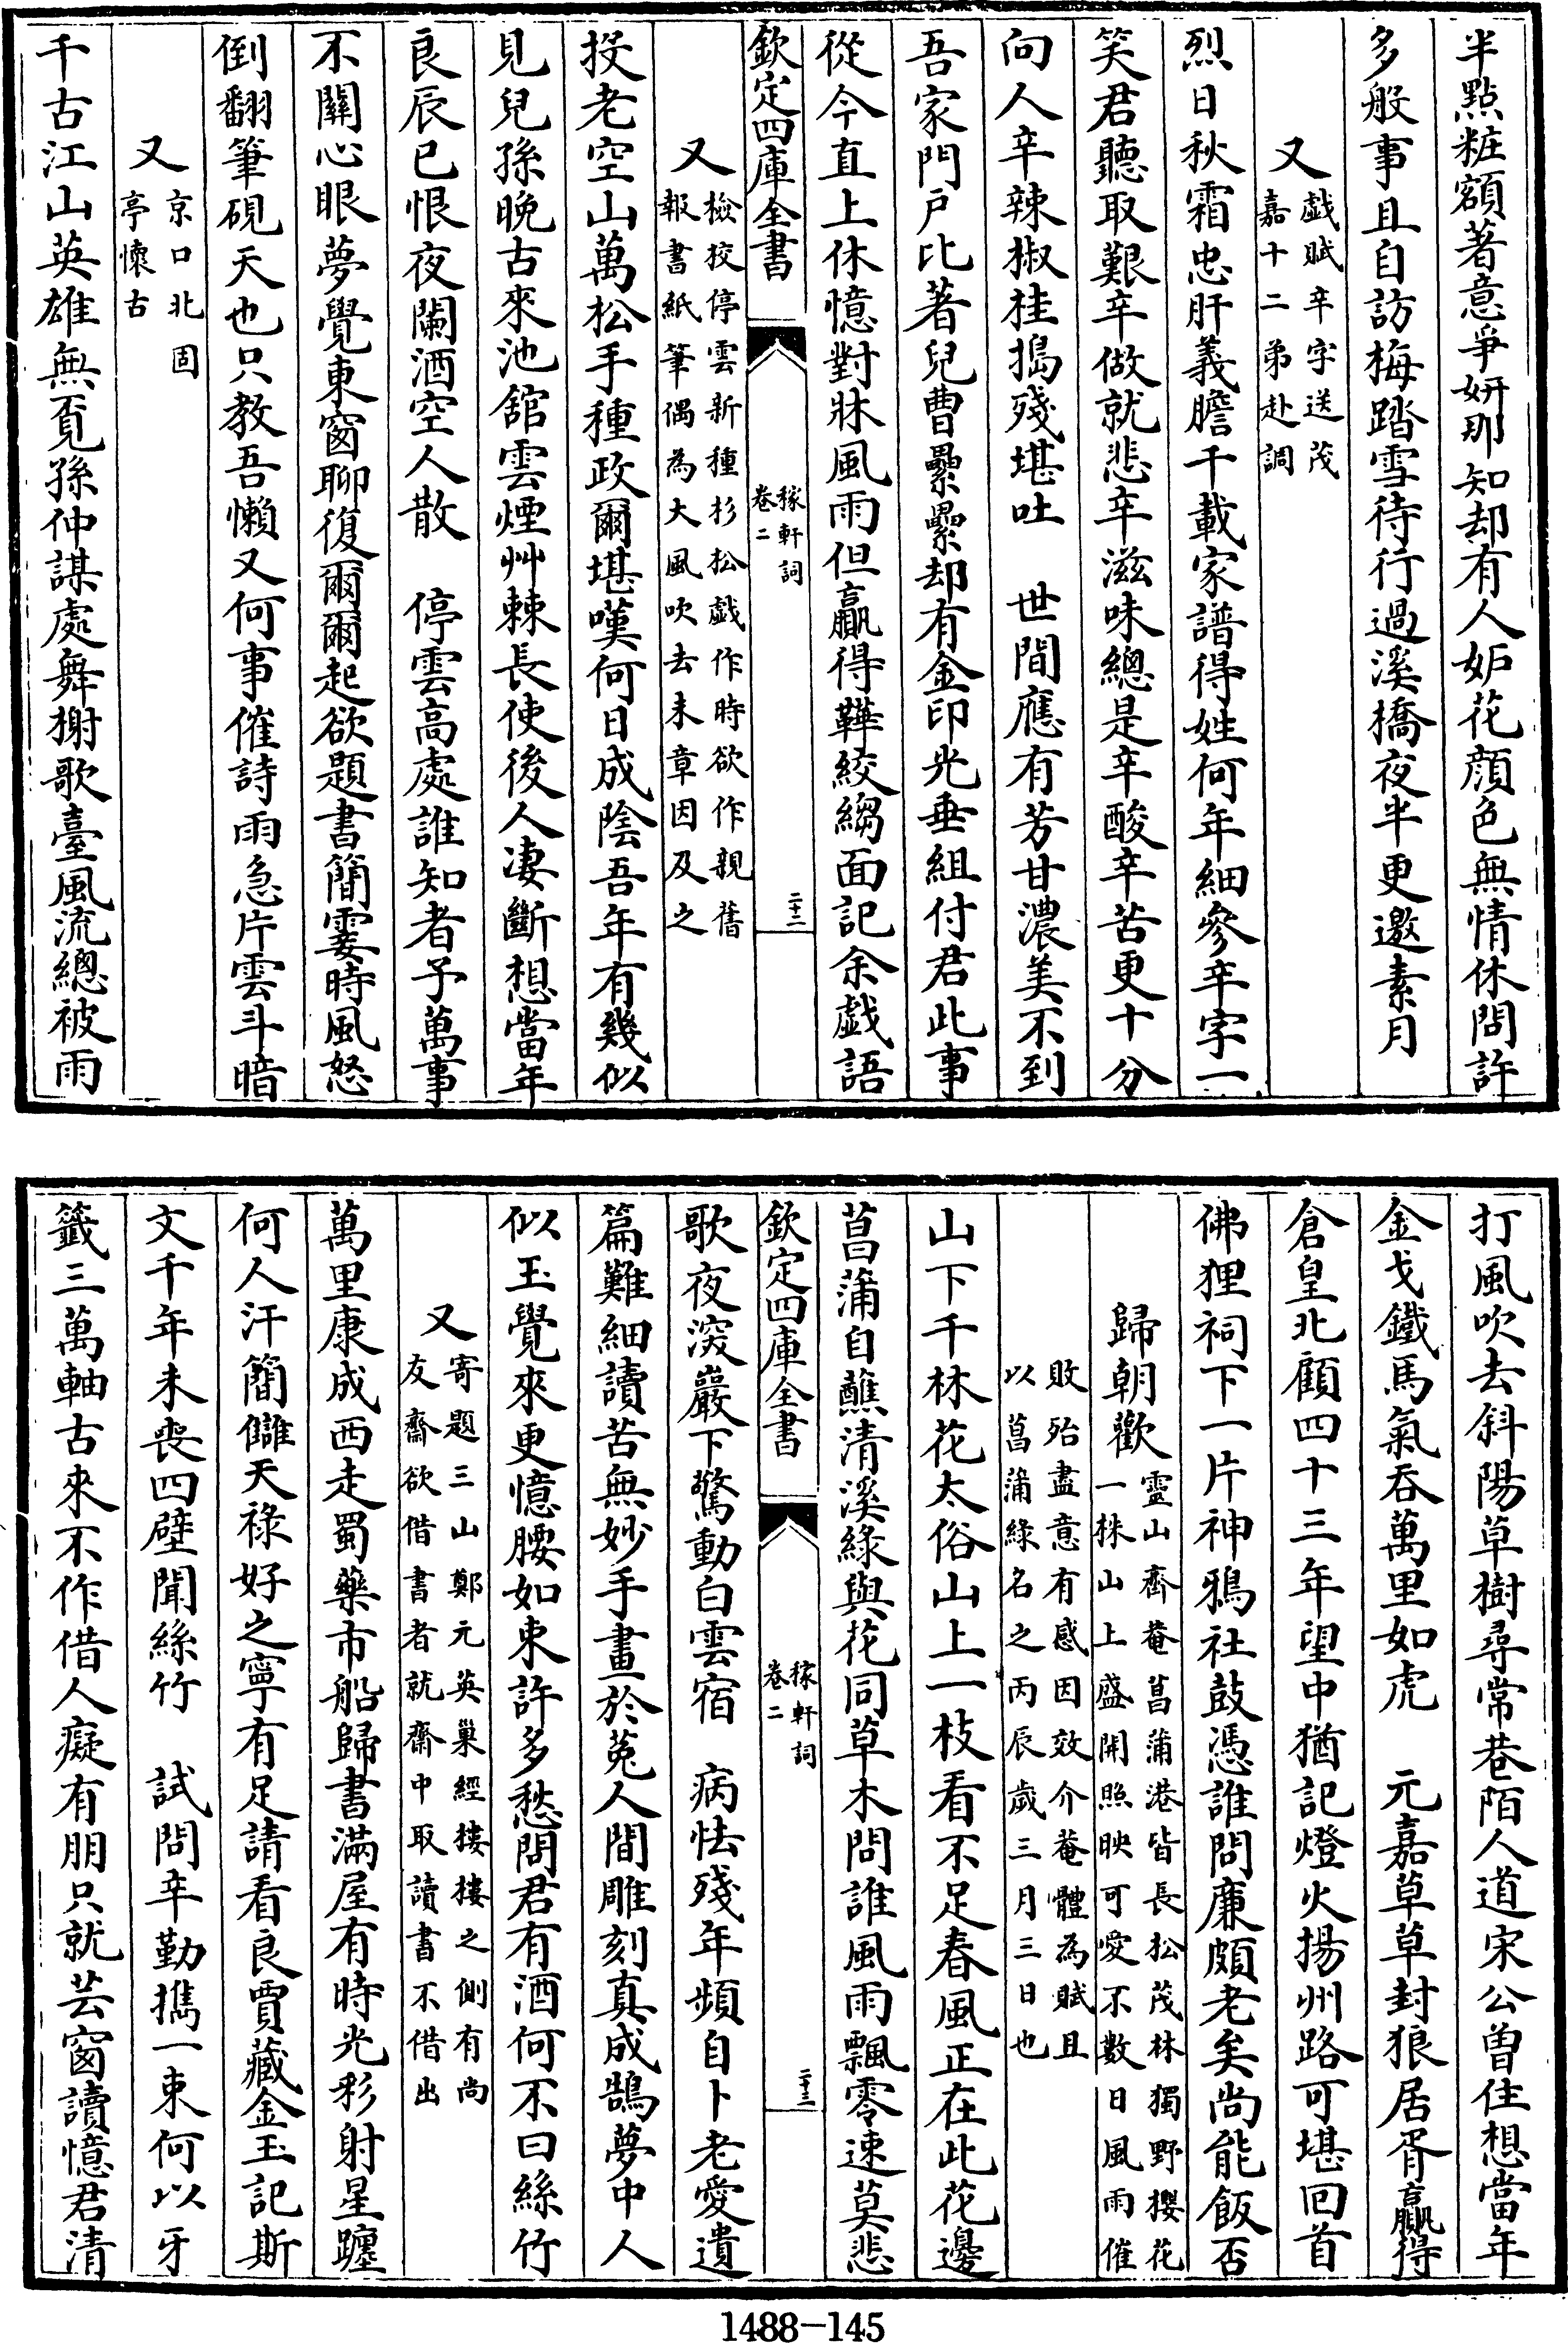 半點粧額著意爭妍那知却有人妒花顔色無情休問許
多般事且自訪梅踏雪待行過溪橋夜半更邀素月
又戯賦辛字送茂
嘉十二弟赴調
烈日秋霜忠肝義膽千載家譜得姓何年細參辛字一
笑君聽取艱辛做就悲辛滋味總是辛酸辛苦更十分
向人辛辣椒桂搗殘堪吐　世間應有芳甘濃美不到
吾家門户比著兒曹纍纍却有金印光垂組付君此事
從今直上休憶對牀風雨但贏得鞾絞縐面記余戯語
欽定四庫全書
稼軒詞
卷二
二十二
又檢校停雲新種杉松戯作時欲作親舊
報書紙筆偶為大風吹去末章因及之
投老空山萬松手種政爾堪嘆何日成陰吾年有幾似
見兒孫晚古來池舘雲煙艸棘長使後人淒斷想當年
良辰已恨夜闌酒空人散　停雲高處誰知者予萬事
不關心眼夢覺東窗聊復爾爾起欲題書簡霎時風怒
倒翻筆硯天也只教吾懶又何事催詩雨急片雲斗暗
又京口北固
亭懷古
千古江山英雄無覔孫仲謀處舞榭歌臺風流總被雨
打風吹去斜陽草樹尋常巷陌人道宋公曽住想當年
金戈鐵馬氣吞萬里如虎　元嘉草草封狼居胥贏得
倉皇北顧四十三年望中猶記燈火揚州路可堪回首
佛狸祠下一片神鴉社鼓憑誰問廉頗老矣尚能飯否
歸朝歡靈山齊菴菖蒲港皆長松茂林獨野櫻花
一株山上盛開照映可愛不數日風雨催
敗殆盡意有感因效介菴體為賦且
以菖蒲緑名之丙辰歲三月三日也
山下千林花太俗山上一枝看不足春風正在此花邊
菖蒲自蘸清溪綠與花同草木問誰風雨飄零速莫悲
欽定四庫全書
稼軒詞
卷二
二十三
歌夜深巖下驚動白雲宿　病怯殘年頻自卜老愛遺
篇難細讀苦無妙手畫於菟人間雕刻真成鵠夢中人
似玉覺來更憶腰如束許多愁問君有酒何不曰絲竹
又寄題三山鄭元英巢經樓樓之側有尚
友齋欲借書者就齋中取讀書不借出
萬里康成西走蜀藥市船歸書滿屋有時光彩射星躔
何人汗簡讎天祿好之寧有足請看良賈藏金玉記斯
文千年未喪四壁聞絲竹　試問辛勤攜一束何以牙
籤三萬軸古來不作借人癡有朋只就芸窗讀憶君清
1488-145